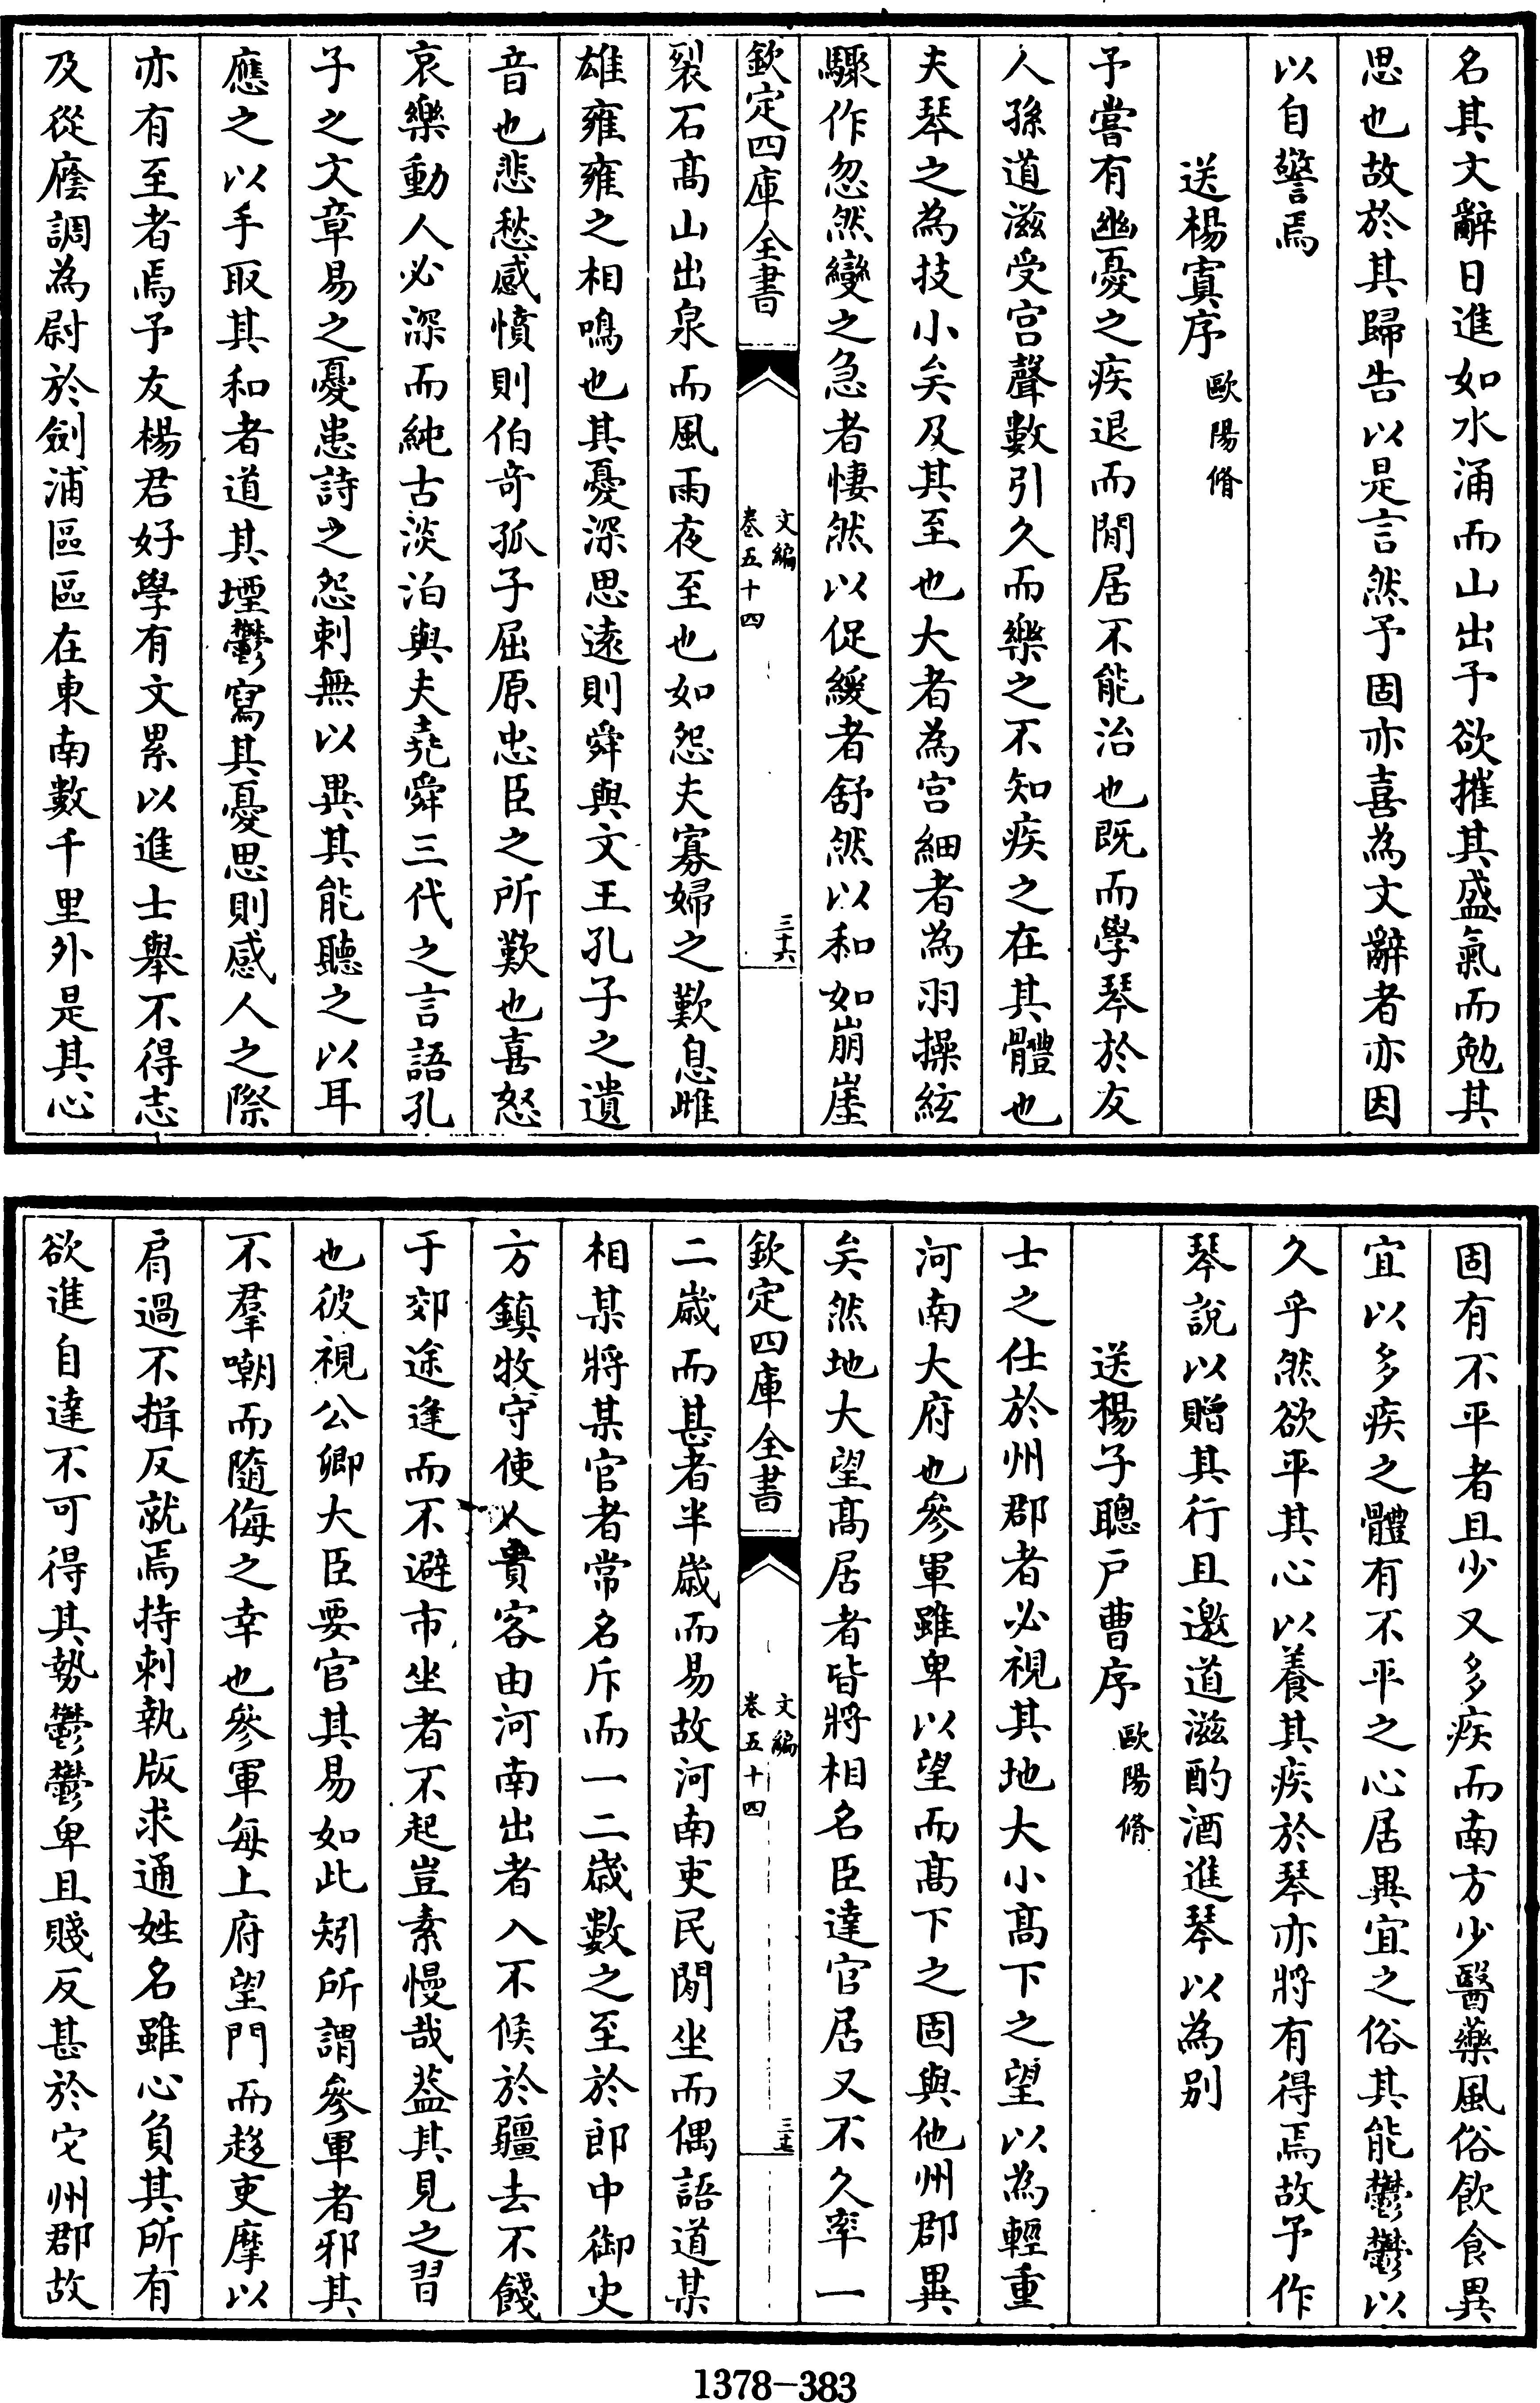 名其文辭日進如水涌而山出予欲摧其盛氣而勉其
思也故於其歸告以是言然予固亦喜為文辭者亦因
以自警焉
送楊寘序 歐陽脩
予嘗有幽憂之疾退而閒居不能治也既而學琴於友
人孫道滋受宫聲數引久而樂之不知疾之在其體也
夫琴之為技小矣及其至也大者為宫細者為羽操絃
驟作忽然變之急者悽然以促緩者舒然以和如崩崖
欽定四庫全書 文編 卷五十四 三十六
裂石髙山出泉而風雨夜至也如怨夫寡婦之歎息雌
雄雍雍之相鳴也其憂深思逺則舜與文王孔子之遺
音也悲愁感憤則伯竒孤子屈原忠臣之所歎也喜怒
哀樂動人必深而純古淡泊與夫堯舜三代之言語孔
子之文章易之憂患詩之怨刺無以異其能聽之以耳
應之以手取其和者道其堙鬱寫其憂思則感人之際
亦有至者焉予友楊君好學有文累以進士舉不得志
及從廕調為尉於劍浦區區在東南數千里外是其心
固有不平者且少又多疾而南方少醫藥風俗飲食異
宜以多疾之體有不平之心居異宜之俗其能鬱鬱以
久乎然欲平其心以養其疾於琴亦將有得焉故予作
琴說以贈其行且邀道滋酌酒進琴以為别
送楊子聰户曹序 歐陽脩
士之仕於州郡者必視其地大小髙下之望以為輕重
河南大府也參軍雖卑以望而髙下之固與他州郡異
矣然地大望髙居者皆將相名臣達官居又不久率一
欽定四庫全書 文編 卷五十四 三十七
二歲而甚者半歲而易故河南吏民閒坐而偶語道某
相某將某官者常名斥而一二歲數之至於郎中御史
方鎮牧守使人貴客由河南出者入不候於疆去不餞
于郊途逢而不避市坐者不起豈素慢哉葢其見之習
也彼視公卿大臣要官其易如此矧所謂參軍者邪其
不羣嘲而隨侮之幸也參軍每上府望門而趍吏摩以
肩過不揖反就焉持刺執版求通姓名雖心負其所有
欲進自達不可得其勢鬱鬱卑且賤反甚於它州郡故
1378—383